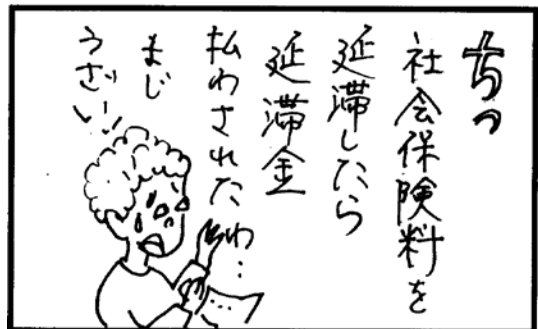 ちっ
社会保険料を
延滞したら
延滞金
払わされたわ…
まじ
うざい!!